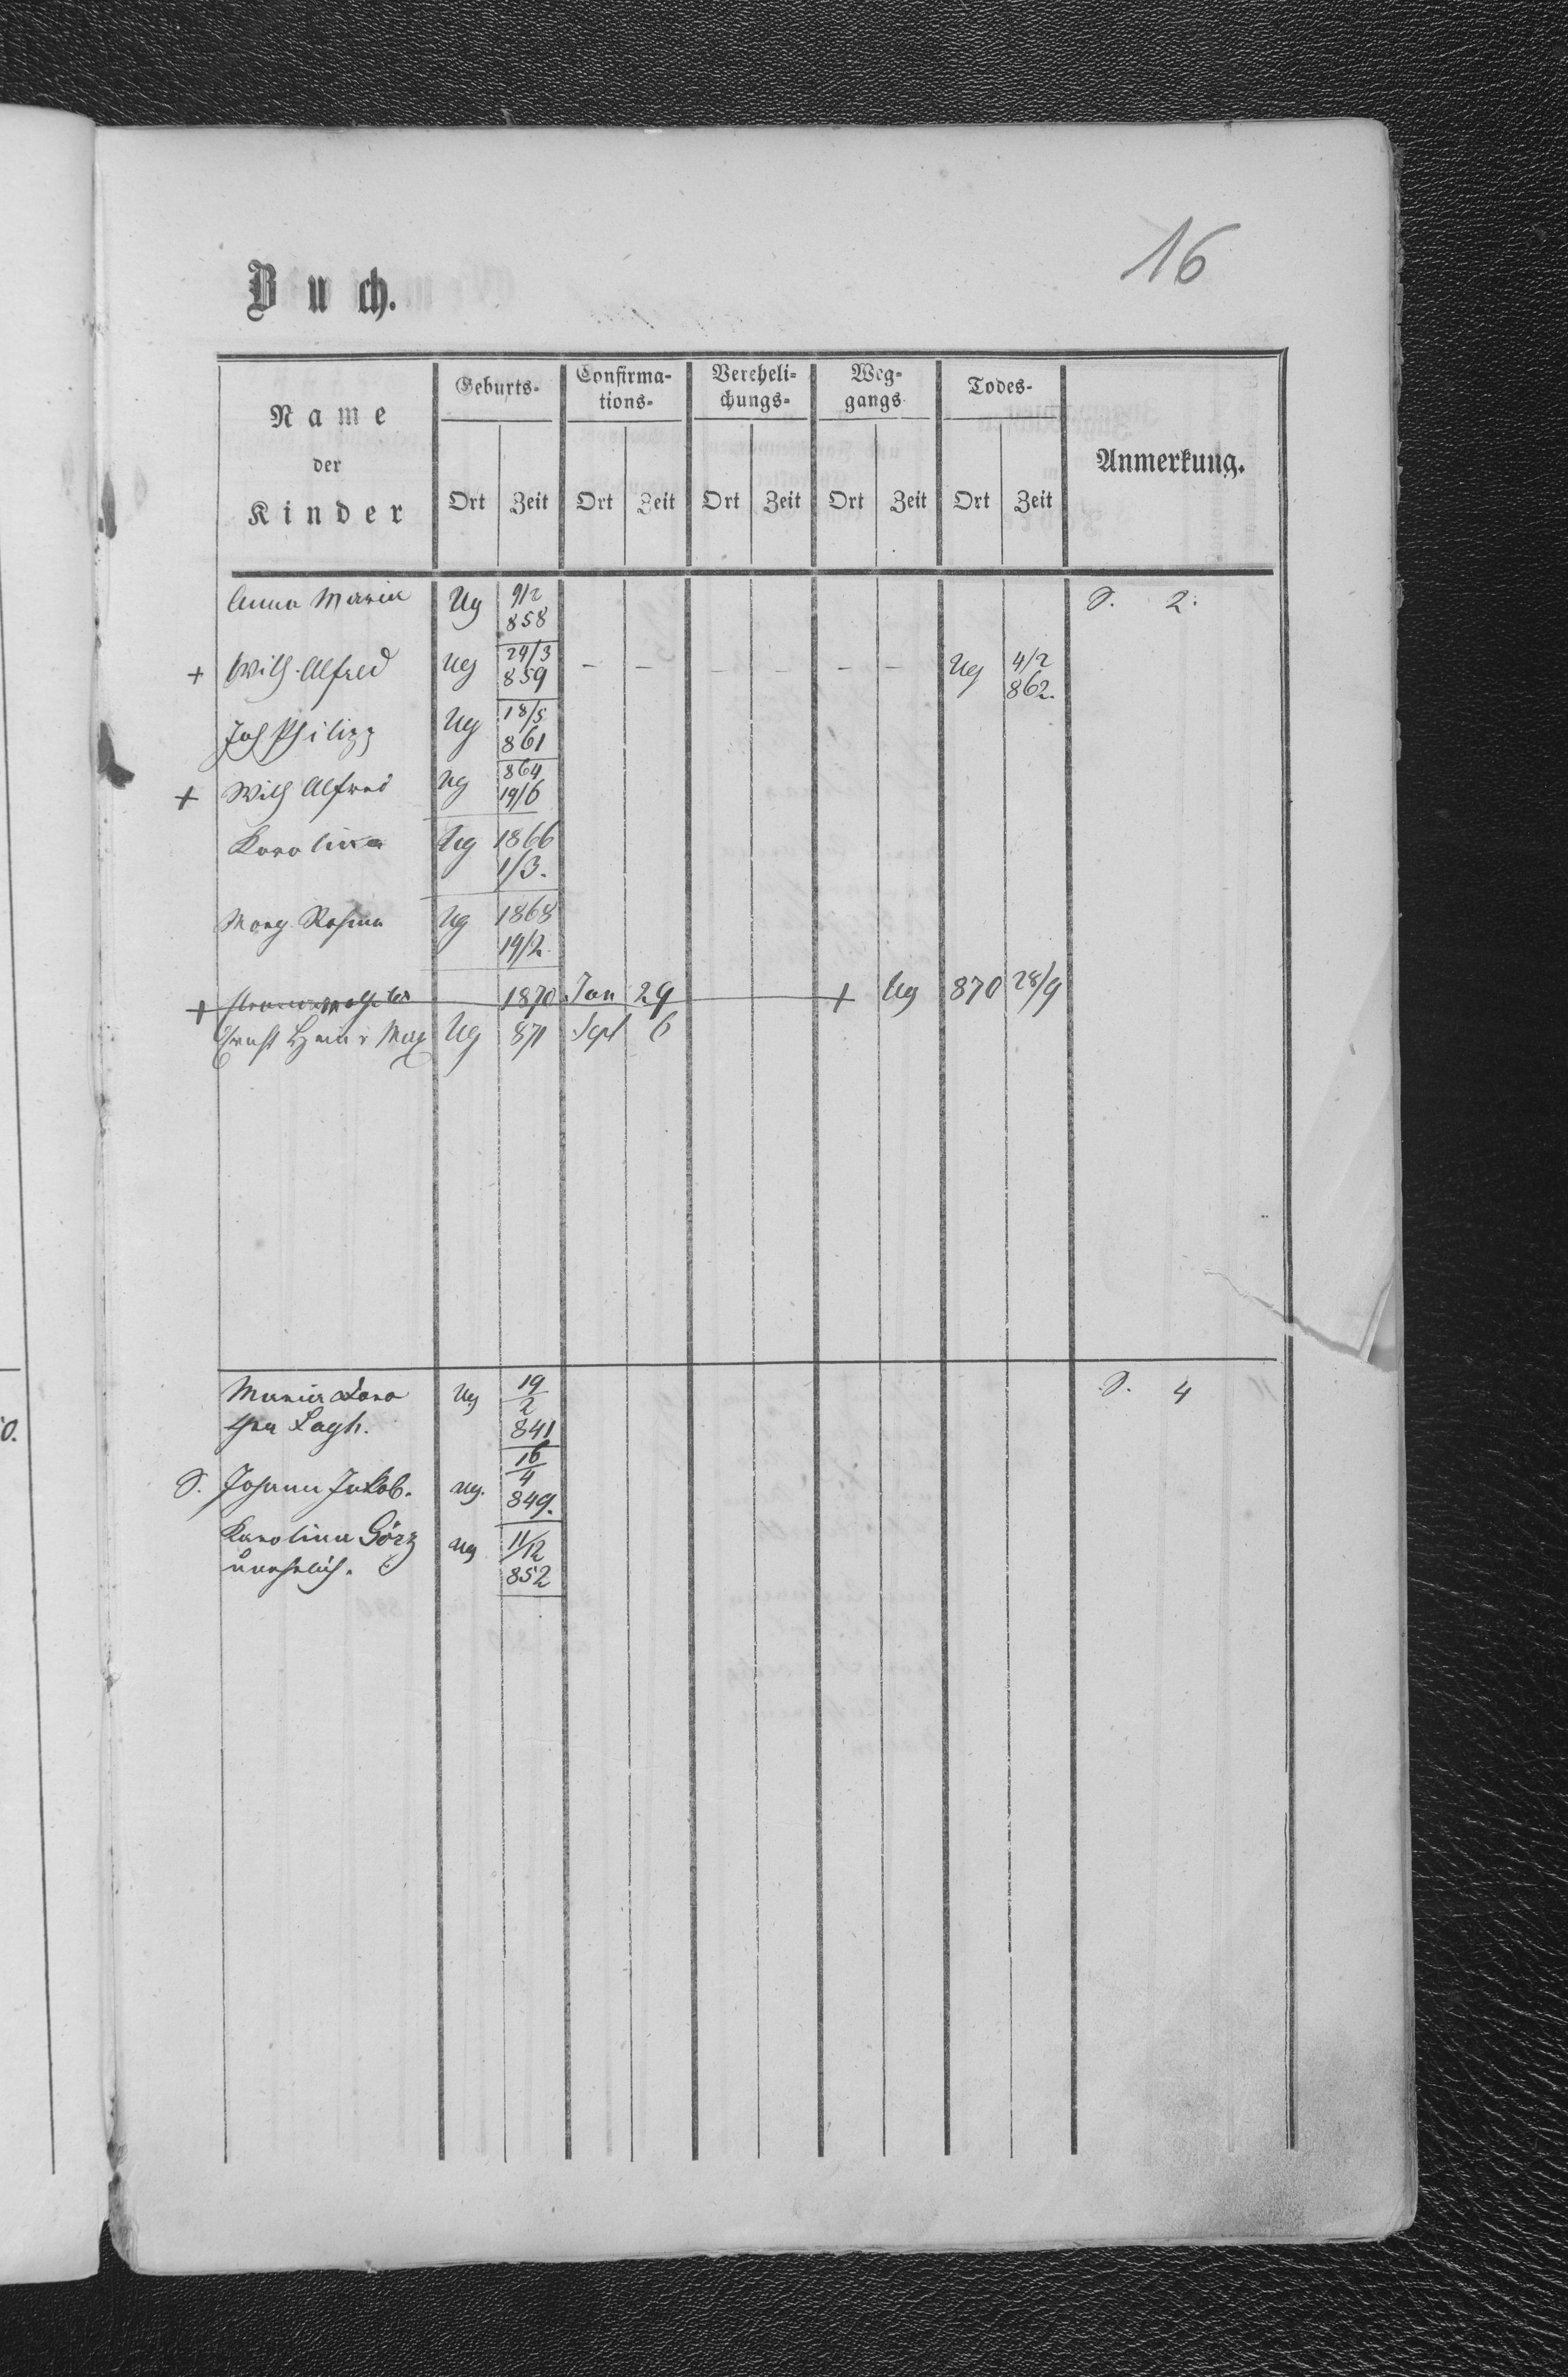 16
Buch.
Name der Kinder
Geburts-
Confirma-tions-
Vereheli-chungs-
Weg-gangs
Todes-
Anmerkung.
Ort Zeit Ort Zeit Ort Zeit Ort Zeit Ort Zeit
Anna Maria Ug 9/2 858 S. 2.
+ Wilh. Alfred Ug 24/3 859 – – – – – – Ug 4/2 862.
Joh Philipp Ug 18/5 861
+ Wilh Alfred Ug 864 19/6
Karolina Ug 1866 1/3.
Marg. Rosina Ug 1868 19/2
+ 1870 Jan 29 + Ug 870 28/9
Ernst Heinr Max Ug 871 Sept 6
Maria Ug 19/2 841 S. 4
S. Johann Jakob. Ug. 16/4 849.
Karolina Görz Ug 11/12 852
unehelich.
0.